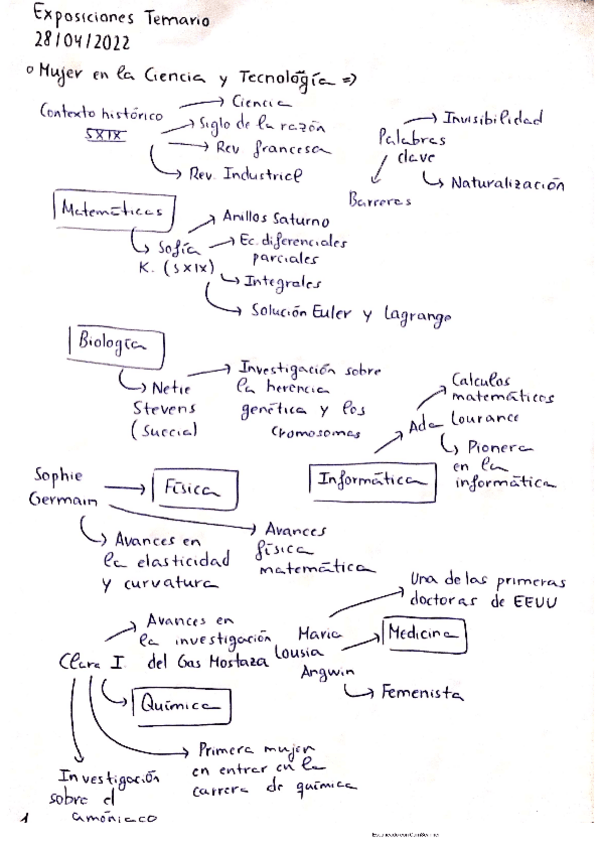 Exposiciones Temario
28/04/2022
o Mujer en la Ciencia y Tecnología =>
Contexto histórico
SXIX
Ciencia
Siglo de la razón
Rev francesa
Rev. Industrial
Palabras
clave
Invisibilidad
Naturalización
Barreras
Matemáticas
Sofía
K. (SXIX)
Anillos Saturno
Ec. diferenciales
parciales
Integrales
Solución Euler y Lagrange
Biología
Netie
Stevens
(Succia)
Investigación sobre
la herencia
genética y los
cromosomas
Informática
Ada Lourance
Calculos
matemáticos
Pionera
en la
informática
Sophie
Germain
Física
Avances en
la elasticidad
y curvatura
Avances
física
matemática
Clara I.
Avances en
la investigación
del Gas Mostaza
Química
Primera mujer
en entrar en la
carrera de química
Investigación
sobre el
amóniaco
Maria
Lousia
Angwin
Una de las primeras
doctoras de EEUU
Medicina
Femenista
1
Escaneado con CamScanner